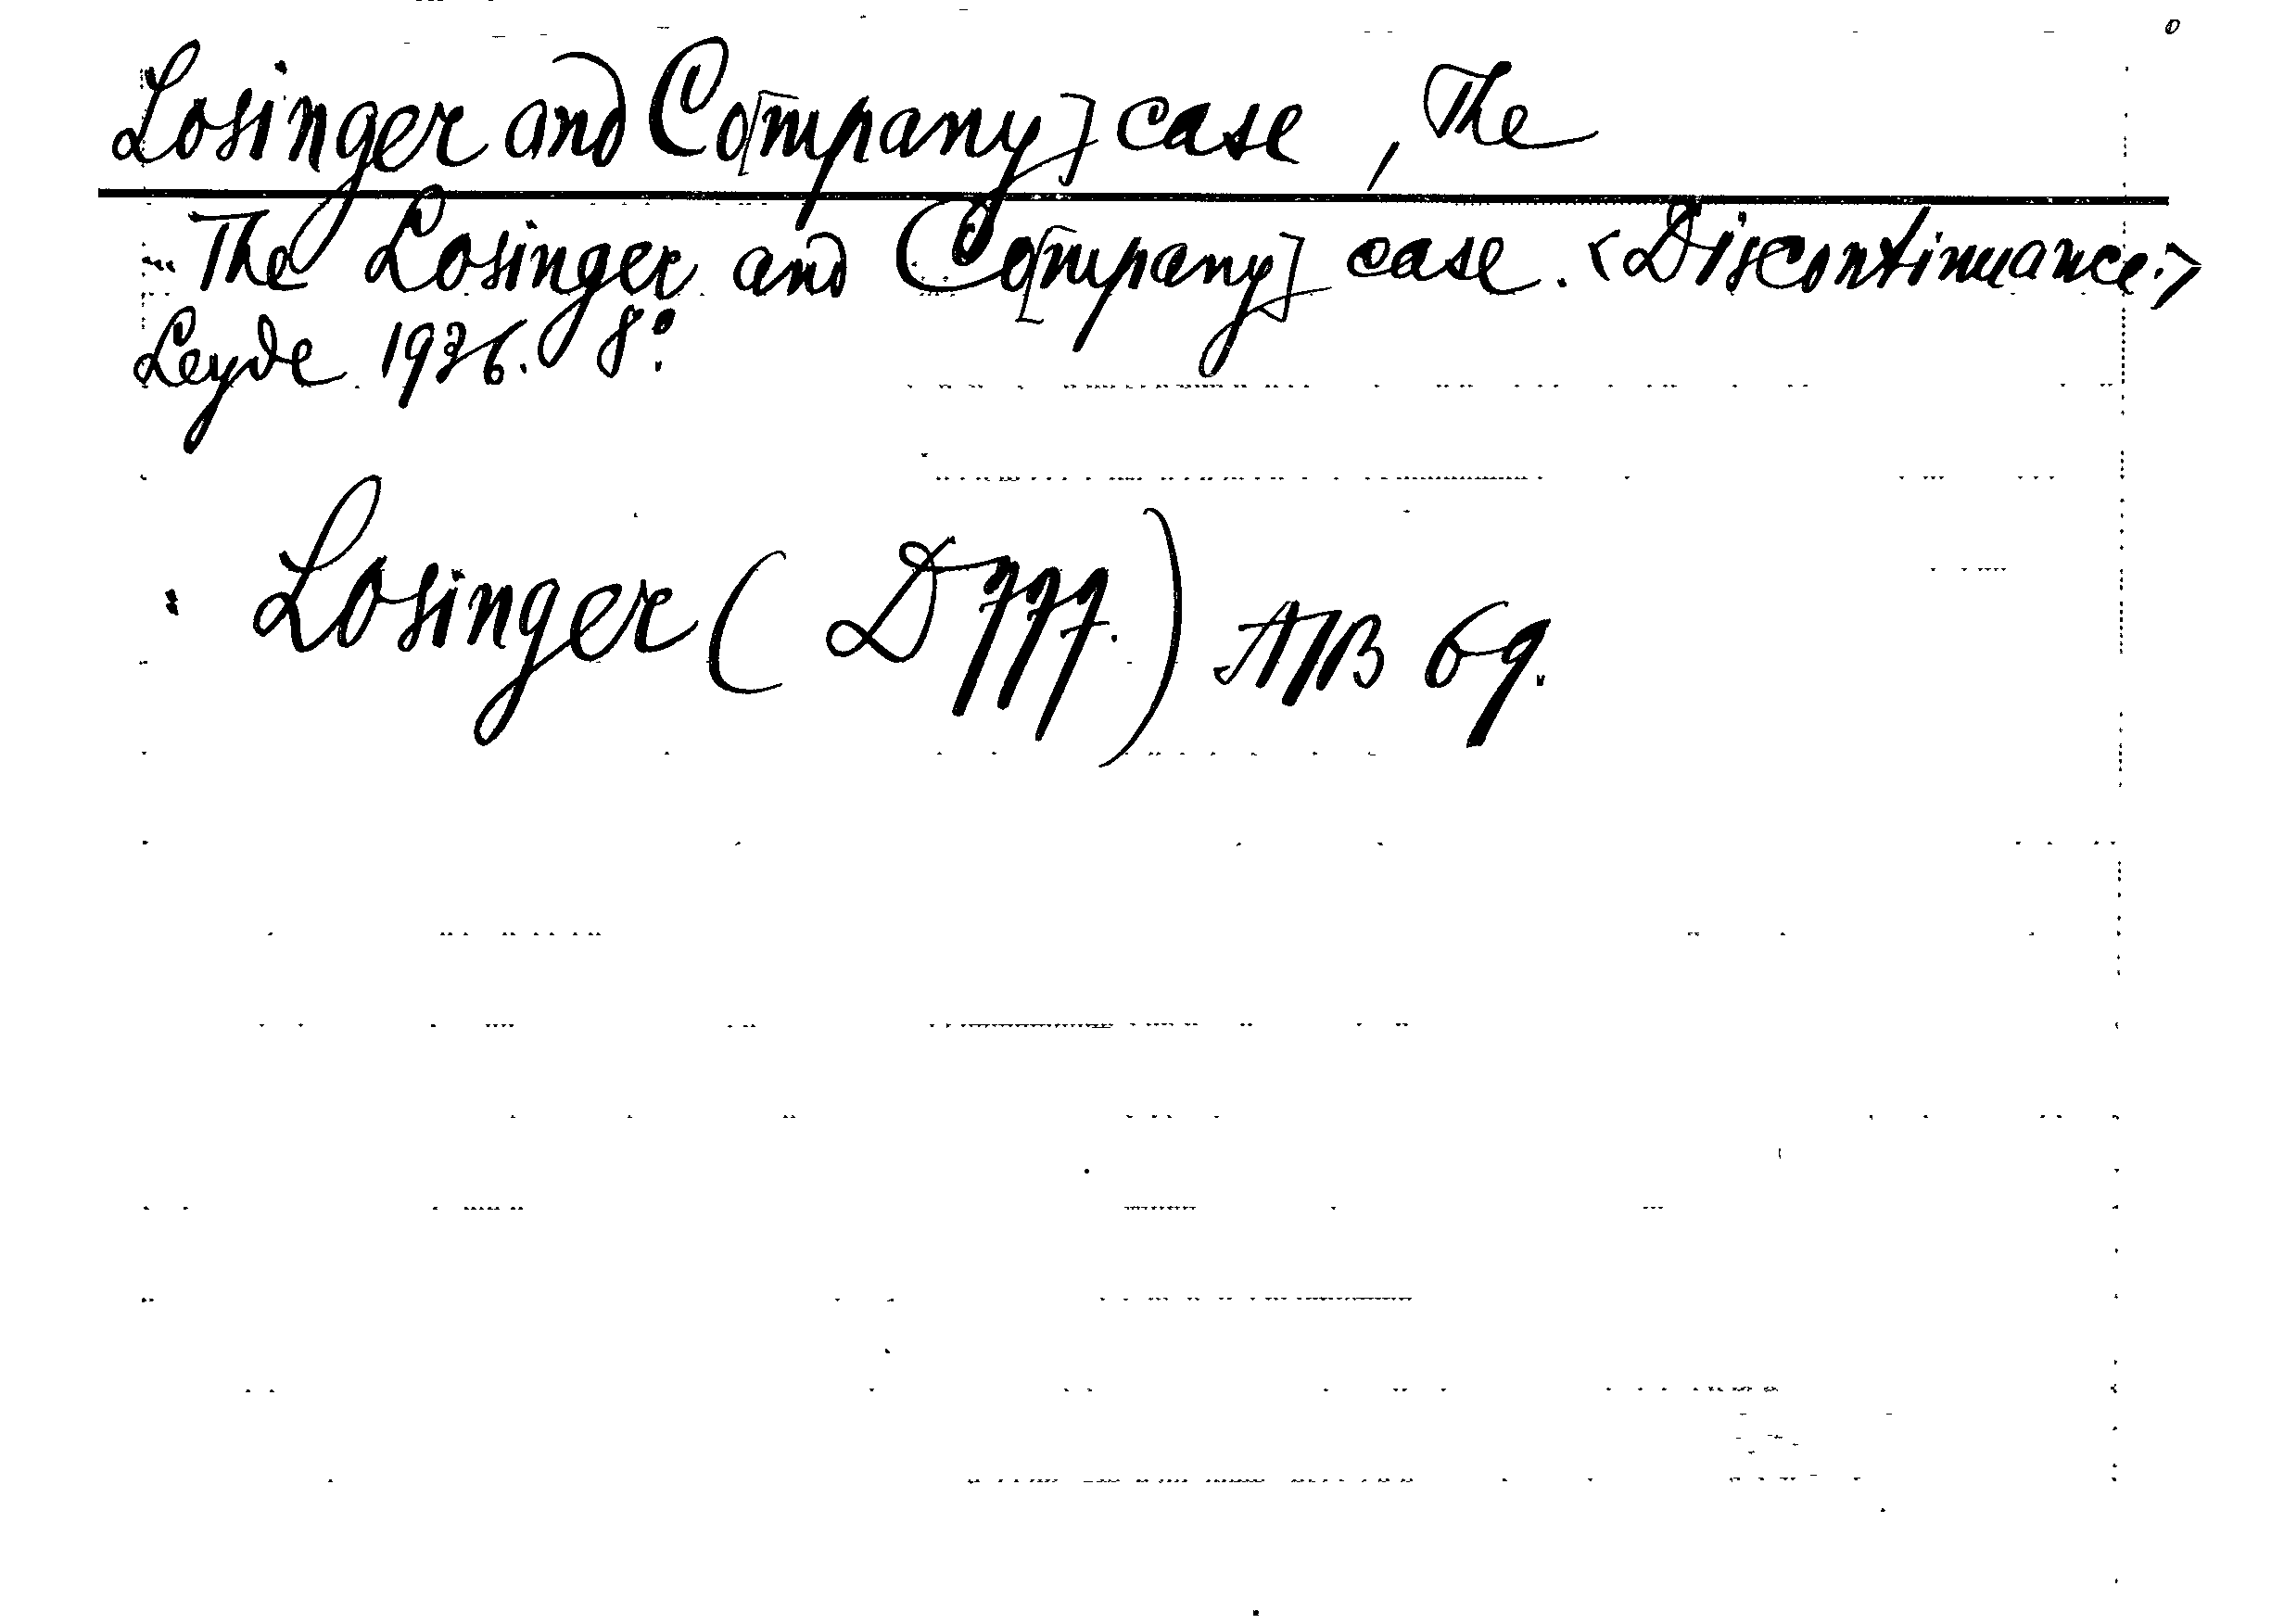 Losinger and Co[mpany] case, The
The Losinger and Co[mpany] case. <Discontinuance.>
Leyde 1936. 8°.
Losinger (D 777.) A/B 69.